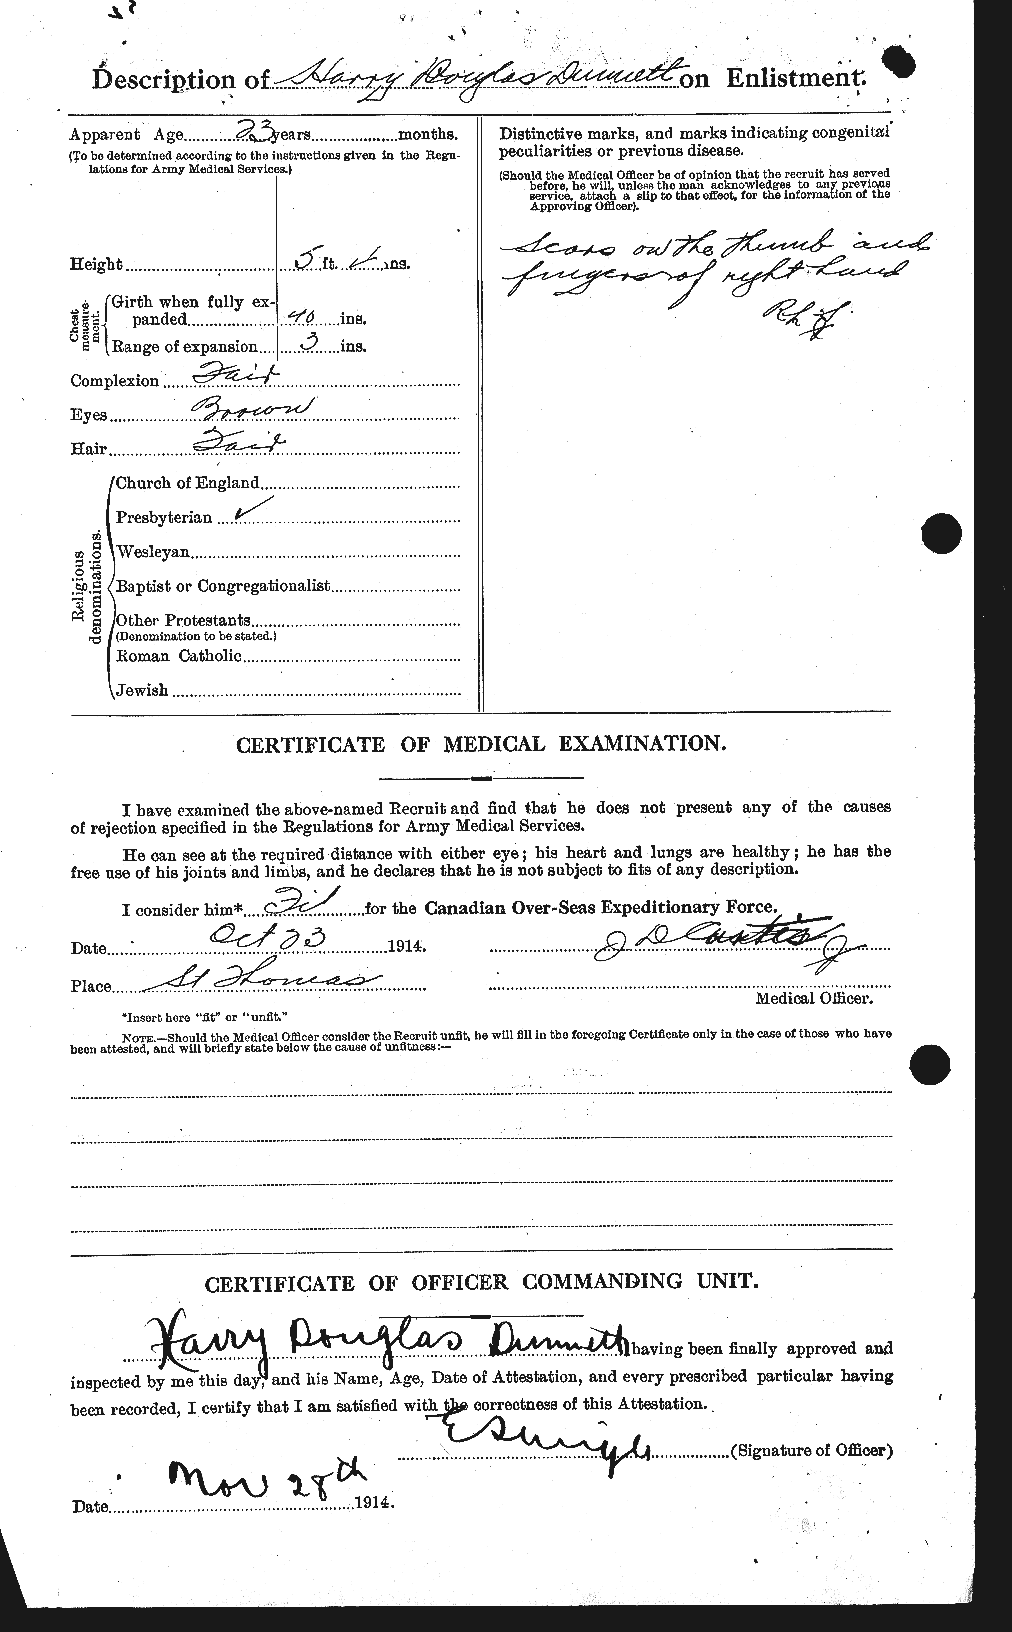 Description of Harry Douglas Dunnett on Enlistment.
Apparent Age 23 years months.
(To be determined according to the instructions given in the Regu-
lations for Army Medical Services.)
Height 5 ft. ins.
Chest measurement.
Girth when fully ex-
panded 40 ins.
Range of expansion 3 ins.
Complexion Fair
Eyes Brown
Hair Fair
Religious denominations.
Church of England
Presbyterian ✓
Wesleyan
Baptist or Congregationalist
Other Protestants
(Denomination to be stated.)
Roman Catholic
Jewish
Distinctive marks, and marks indicating congenital
peculiarities or previous disease.
(Should the Medical Officer be of opinion that the recruit has served
before, he will, unless the man acknowledges to any previous
service, attach a slip to that effect, for the information of the
Approving Officer).
Scars on the thumb and
fingers of right hand
CERTIFICATE OF MEDICAL EXAMINATION.
I have examined the above-named Recruit and find that he does not present any of the causes
of rejection specified in the Regulations for Army Medical Services.
He can see at the required distance with either eye; his heart and lungs are healthy; he has the
free use of his joints and limbs, and he declares that he is not subject to fits of any description.
I consider him* Fit for the Canadian Over-Seas Expeditionary Force.
Date Oct 23 1914.
Place St Thomas
Medical Officer.
*Insert here "fit" or "unfit."
NOTE.—Should the Medical Officer consider the Recruit unfit, he will fill in the foregoing Certificate only in the case of those who have
been attested, and will briefly state below the cause of unfitness:—
CERTIFICATE OF OFFICER COMMANDING UNIT.
Harry Douglas Dunnett having been finally approved and
inspected by me this day, and his Name, Age, Date of Attestation, and every prescribed particular having
been recorded, I certify that I am satisfied with the correctness of this Attestation.
(Signature of Officer)
Date Nov 28th 1914.